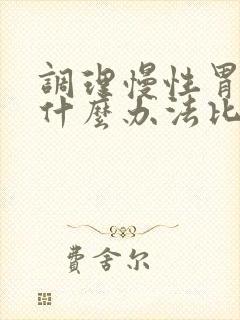 調理慢性胃
什麼办法比
費舍尔